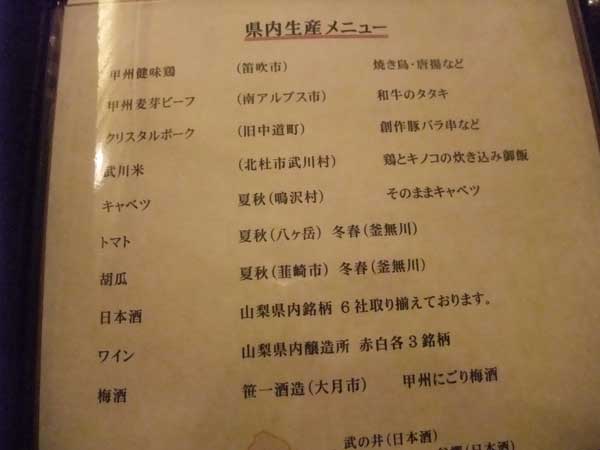 県内生産メニュー
甲州健味鶏 (笛吹市) 焼き鳥・唐揚など
甲州麦芽ビーフ (南アルプス市) 和牛のタタキ
クリスタルポーク (旧中道町) 創作豚バラ串など
武川米 (北杜市武川村) 鶏とキノコの炊き込み御飯
キャベツ 夏秋(鳴沢村) そのままキャベツ
トマト 夏秋(八ヶ岳) 冬春(釜無川)
胡瓜 夏秋(韮崎市) 冬春(釜無川)
日本酒 山梨県内銘柄 6社取り揃えております。
ワイン 山梨県内醸造所 赤白各3銘柄
梅酒 笹一酒造(大月市) 甲州にごり梅酒
武の井(日本酒)
(日本酒)